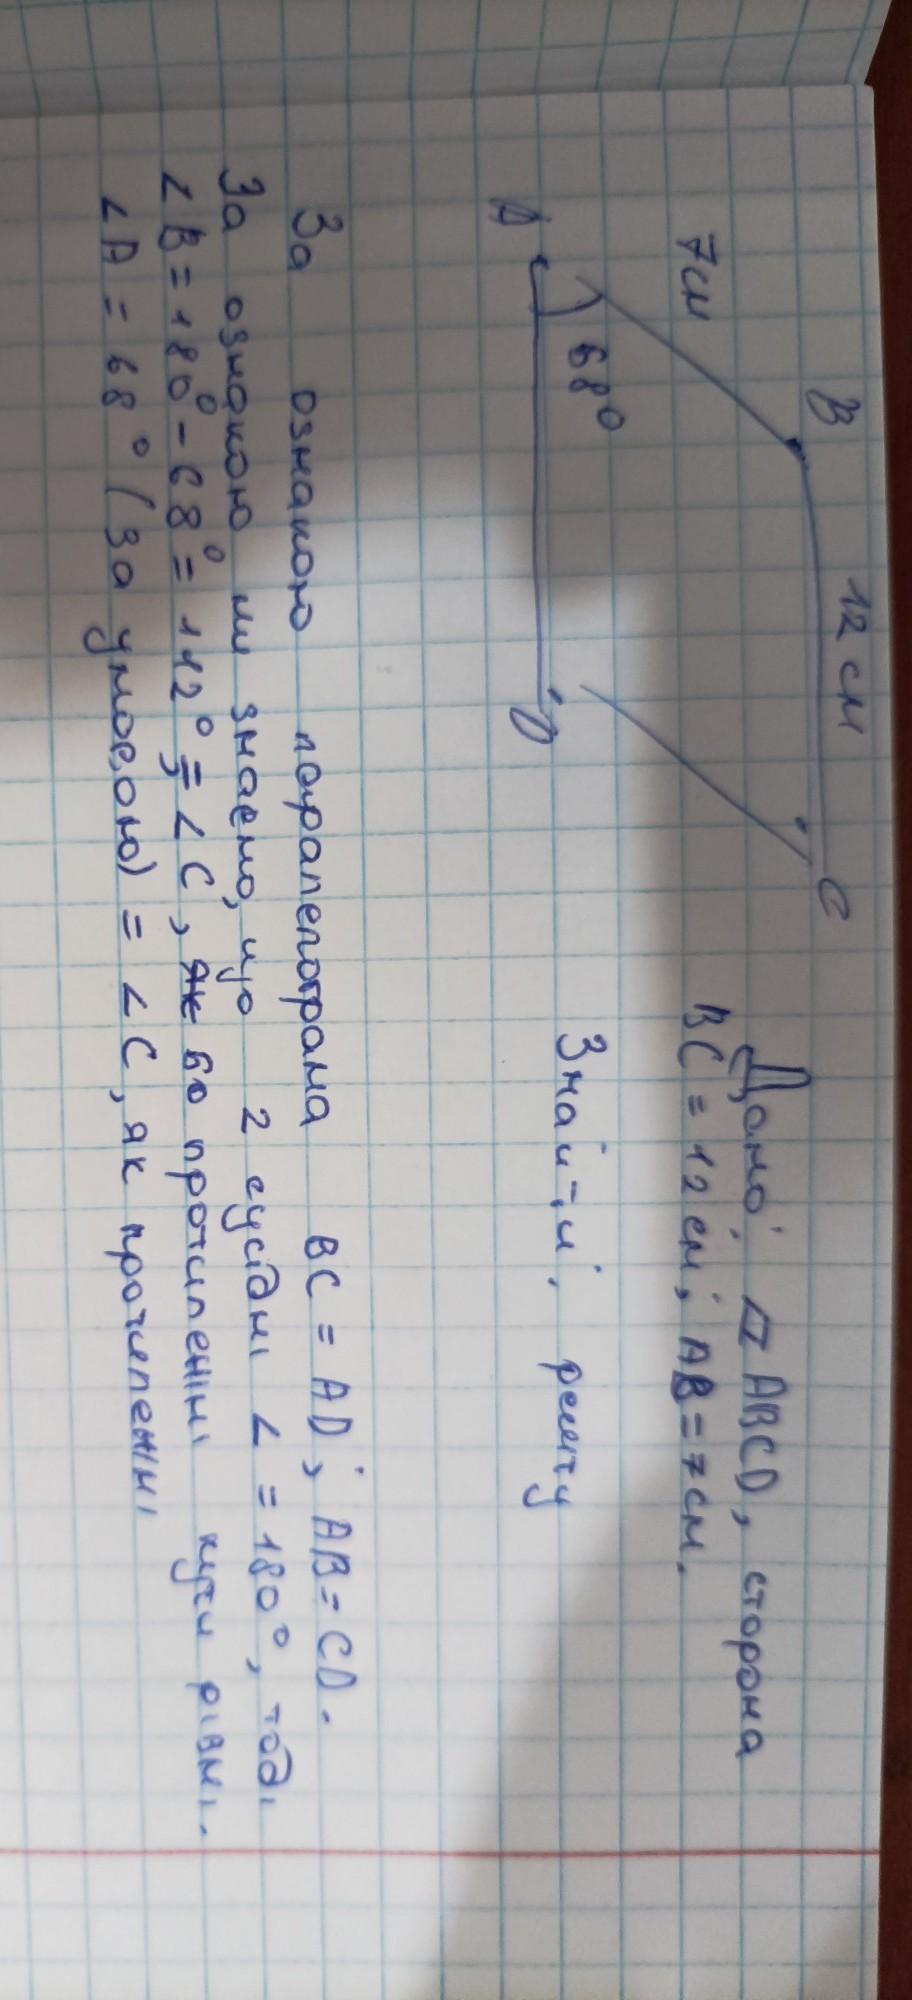 B 12 см C
7см
68°
A D
Дано: ▱ ABCD, сторона
BC = 12 см; AB = 7 см.
Знайти: решту
За ознакою паралелограма BC = AD; AB = CD.
За ознакою ми знаємо, що 2 сусідні ∠ = 180°, тоді
∠B = 180° - 68° = 112° = ∠C, як бо протилежні кути рівні.
∠A = 68° (за умовою) = ∠C, як протилежні